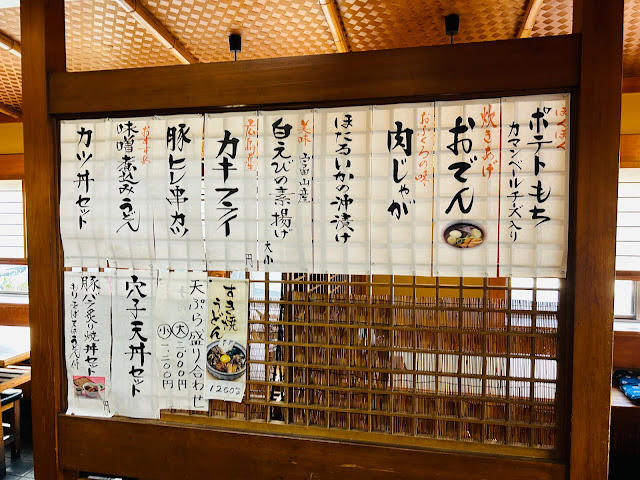 ほくほく
ポテトもち
カマンベールチーズ入り
炊きあげ
おでん
おふくろの味
肉じゃが
ほたるいかの沖漬け
美味
富山産
白えびの素揚げ
大小
広島産
カキフライ
円
豚ヒレ串カツ
味噌煮込みうどん
カツ丼セット
すき焼うどん
1260円
天ぷら盛り合わせ
大二〇〇〇円
小一二〇〇円
穴子天丼セット
豚バラ炙り焼丼セット
円